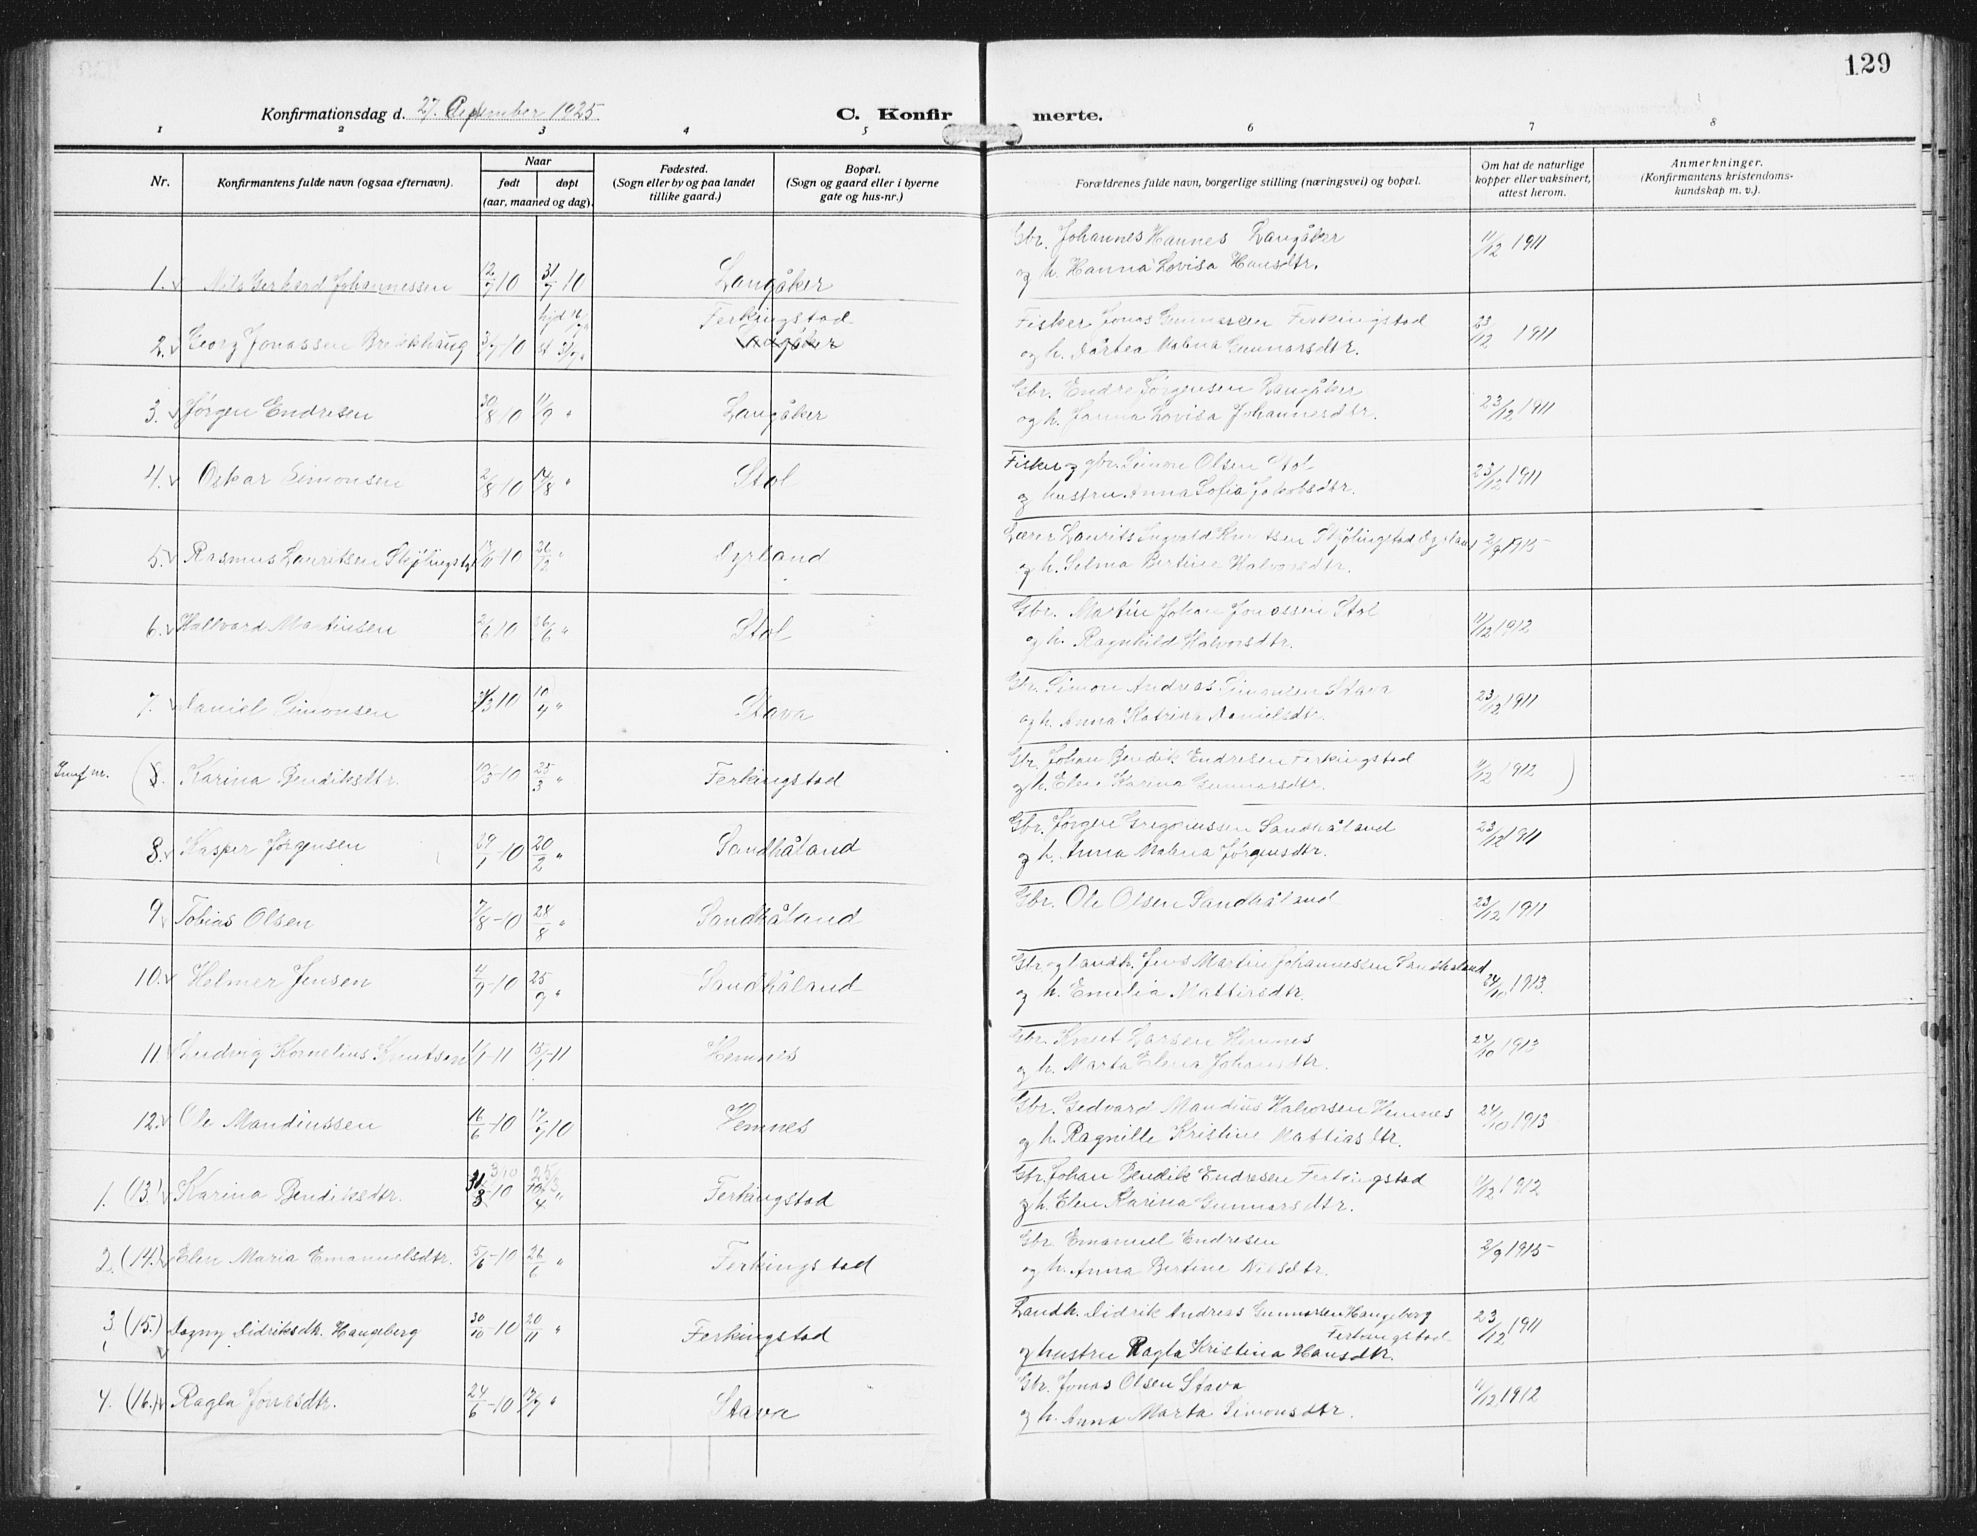 129
Konfirmationsdag d. 27. September 1925.
C. Konfir merte.
1 2 3 4 5 6 7 8
Nr. Konfirmantens fulde navn (ogsaa efternavn). Naar født døpt (aar, maaned og dag). Fødested. (Sogn eller by og paa landet tillike gaard.) Bopæl. (Sogn og gaard eller i byerne gate og hus-nr.) Forældrenes fulde navn, borgerlige stilling (næringsvei) og bopæl. Om hat de naturlige kopper eller vaksinert, attest herom. Anmerkninger. (Konfirmantens kristendoms-kundskap m. v.).
Gbr. Johannes Hannes Langåker 11/12 1911
1. Nils Gerhard Johannessen 12/7 10 31/7 10 Langåker og h. Hanna Lovisa Hansdtr.
Ferkingstad Fisker Jonas Gunnarsen Ferkingstad 23/12 1911
2. Georg Jonassen Breikhaug 3/7-10 Langåker og h. Dårtea Malena Gunnarsdtr.
Gbr. Endre Jørgensen Langåker 23/12 1911
3. Jørgen Endresen 30/8 10 11/9 " Langåker og h. Janna Lovisa Johannesdtr.
Fisker og gbr. Simon Olsen Stol 23/12 1911
4. Oskar Simonsen 2/8-10 14/8 " Stol og hustru Anna Sofia Jakobsdtr.
Lærer Laurits Ingvald Knutsen Skjølingstad Dyrland 2/9 1915
5. Rasmus Lauritsen Skjølingstad 10 26/12 " Dyrland og h. Selma Bertine Halvorsdtr.
Gbr. Martin Johan Jonassen Stol 11/12 1912
6. Hallvard Martinsen 2/6 10 26/6 " Stol og h. Ragnhild Halvorsdtr.
Gbr. Simon Andreas Simonsen Stava 23/12 1911
7. Daniel Simonsen 3 10 10/4 " Stava og h. Anna Katrina Danielsdtr.
Gbr. Johan Bendik Endresen Ferkingstad 11/12 1912 )
Jmf nr. (8. Karina Bendiksdtr. -10 25/3 " Ferkingstad og h. Elen Karina Gunnarsdtr.
Gbr. Jørgen Gregoriussen Sandhåland 23/12 1911
8. Kasper Jørgensen 29/1-10 20/2 " Sandhåland og h. Anna Malena Jørgensdtr.
9 Tobias Olsen 7/8-10 28/8 " Sandhåland Gbr. Ole Olsen Sandhåland 23/12 1911
Gbr og landh. Jens Martin Johannessen Sandhåland
10. Helmer Jensen 4/9-10 25/9 " Sandhåland og h. Emelia Mattisdtr. 24/10 1913.
Gbr. Knut Larsen Hemnes 24/10 1913
11. Ludvig Kornelius Knutsen 1/1-11 15/1-11 Hemnes og h. Marta Elena Johansdtr.
Gbr. Gedvard Mandius Halvorsen Hemnes 24/10 1913
12. Ole Mandiussen 16/6-10 17/7 10 Hemnes og h. Ragnille Kristine Mattiasdtr.
Gbr. Johan Bendik Endresen Ferkingstad 11/12 1912
1. (13.) Karina Bendiksdtr. 31/3-10 10/4 " Ferkingstad og h. Elen Karina Gunnarsdtr.
Gbr. Emanuel Endresen 2/9 1915
2. (14.) Elen Maria Emanuelsdtr. 5/6-10 26/6 " Ferkingstad og h. Anna Bertine Nilsdtr.
Landh. Didrik Andreas Gunnarsen Haugeberg 23/12 1911
3. (15.) Dagny Didriksdtr. Haugeberg 30/10-10 20/11 " Ferkingstad Ferkingstad
og hustru Ragla Kristina Hansdtr.
Gbr. Jonas Olsen Stava 11/12 1912
4. (16.) Ragla Jonasdtr. 24/6-10 17/7 " Stava og h. Anna Marta Simonsdtr.